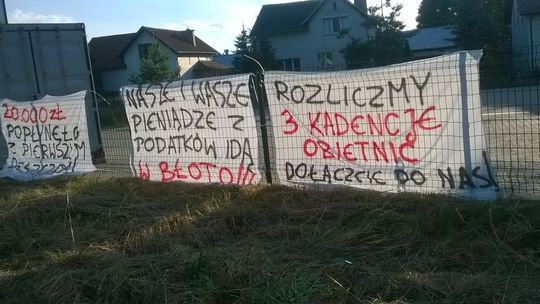 20.000 ZŁ
POPŁYNĘŁO
Z PIERWSZYM
DESZCZEM!
NASZE I WASZE
PIENIĄDZE Z
PODATKÓW IDĄ
W BŁOTO!!!
ROZLICZMY
3 KADENCJE
OBIETNIC
DOŁĄCZCIE DO NAS!